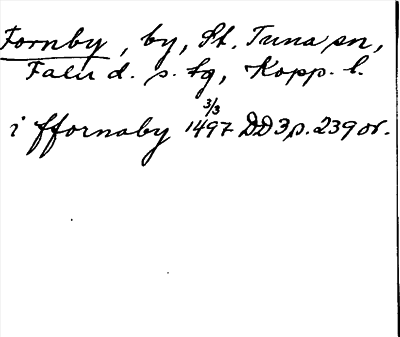 Fornby, by, St. Tuna sn,
Falu d. s. tg, Kopp. l.
i ffornaby 1497 3/3 DD3 p. 239 or.